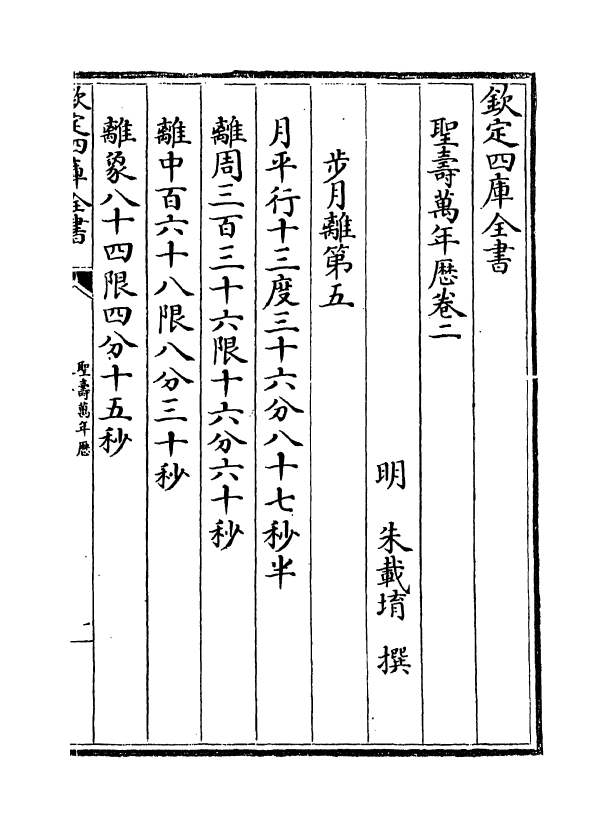 欽定四庫全書
聖壽萬年厯卷二
明 朱載堉 撰
步月離第五
月平行十三度三十六分八十七秒半
離周三百三十六限十六分六十秒
離中百六十八限八分三十秒
離象八十四限四分十五秒
欽定四庫全書
聖壽萬年厯
一